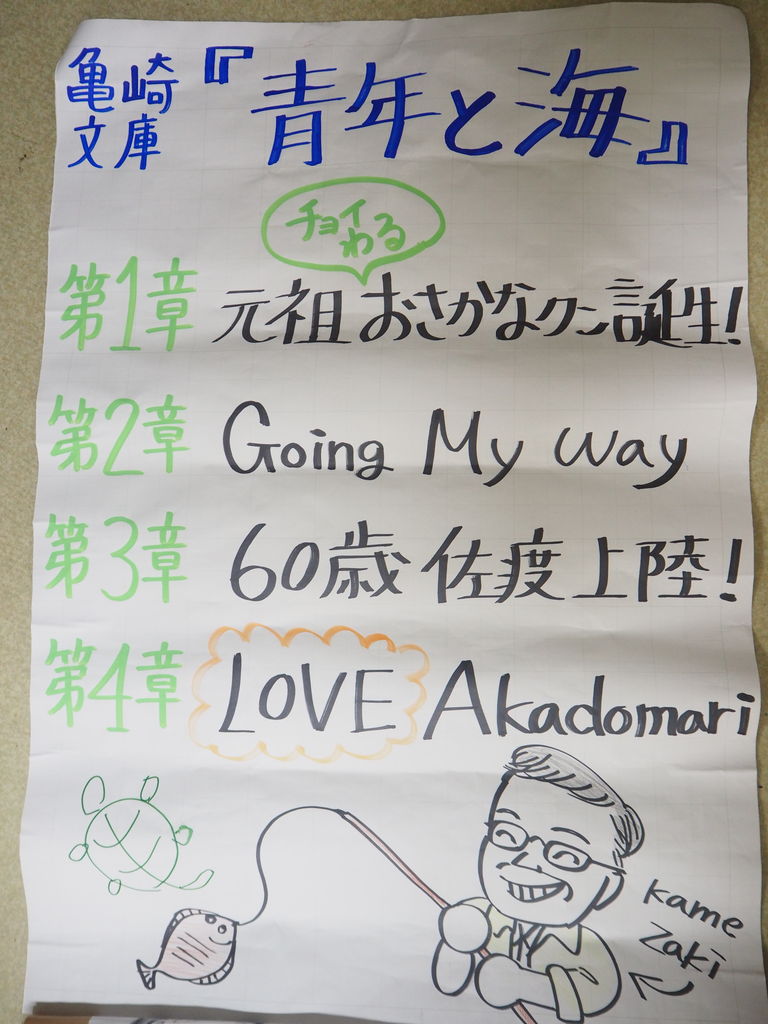 亀崎
文庫
『青年と海』
チョイ
わる
第1章 元祖おさかなクン誕生!
第2章 Going My Way
第3章 60歳 佐度上陸!
第4章 LOVE Akadomari
Kame
Zaki